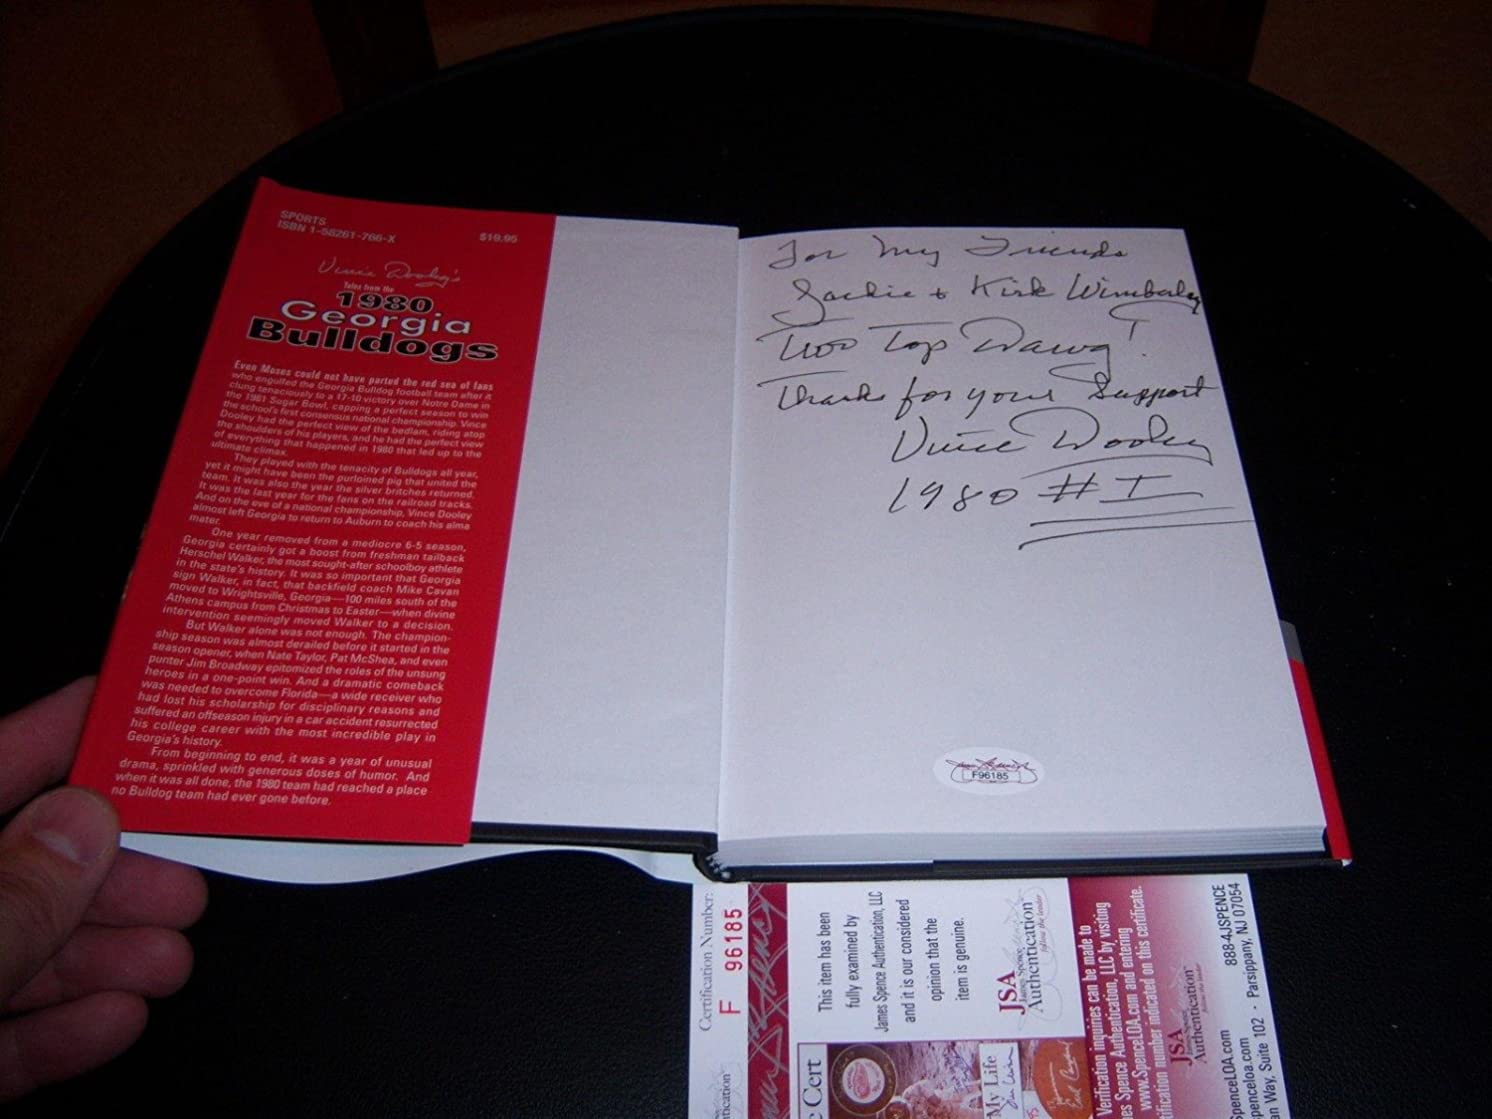 SPORTS
ISBN 1-58261-766-X
$19.95
Vince Dooley's
Tales from the
1980
Georgia
Bulldogs
Even Moses could not have parted the red sea of fans
who engulfed the Georgia Bulldog football team after it
clung tenaciously to a 17-10 victory over Notre Dame in
the 1981 Sugar Bowl, capping a perfect season to win
the school's first consensus national championship. Vince
Dooley had the perfect view of the bedlam, riding atop
the shoulders of his players, and he had the perfect view
of everything that happened in 1980 that led up to the
ultimate climax.
They played with the tenacity of Bulldogs all year,
yet it might have been the purloined pig that united the
team. It was also the year the silver britches returned.
It was the last year for the fans on the railroad tracks.
And on the eve of a national championship, Vince Dooley
almost left Georgia to return to Auburn to coach his alma
mater.
One year removed from a mediocre 6-5 season,
Georgia certainly got a boost from freshman tailback
Herschel Walker, the most sought-after schoolboy athlete
in the state's history. It was so important that Georgia
sign Walker, in fact, that backfield coach Mike Cavan
moved to Wrightsville, Georgia—100 miles south of the
Athens campus from Christmas to Easter—when divine
intervention seemingly moved Walker to a decision.
But Walker alone was not enough. The champion-
ship season was almost derailed before it started in the
season opener, when Nate Taylor, Pat McShea, and even
punter Jim Broadway epitomized the roles of the unsung
heroes in a one-point win. And a dramatic comeback
was needed to overcome Florida—a wide receiver who
had lost his scholarship for disciplinary reasons and
suffered an offseason injury in a car accident resurrected
his college career with the most incredible play in
Georgia's history.
From beginning to end, it was a year of unusual
drama, sprinkled with generous doses of humor. And
when it was all done, the 1980 team had reached a place
no Bulldog team had ever gone before.
For My Friends
Jackie + Kirk Wimberley
Two Top Dawg!
Thanks for your Support
Vince Dooley
1980 # I
F96185
Certification Number:
F 96185
This item has been
fully examined by
James Spence Authentication, LLC
and it is our considered
opinion that the
item is genuine.
JSA
James Spence
Authentication
follow the leader
Verification inquiries can be made to
es Spence Authentication, LLC by visiting
www.SpenceLOA.com and entering
tification number indicated on this certificate.
JSA
James Spence
Authentication
888-4JSPENCE
Parsippany, NJ 07054
an Way, Suite 102 ·
SpenceLOA.com
spenceloa.com
tication
e Cert
My Life